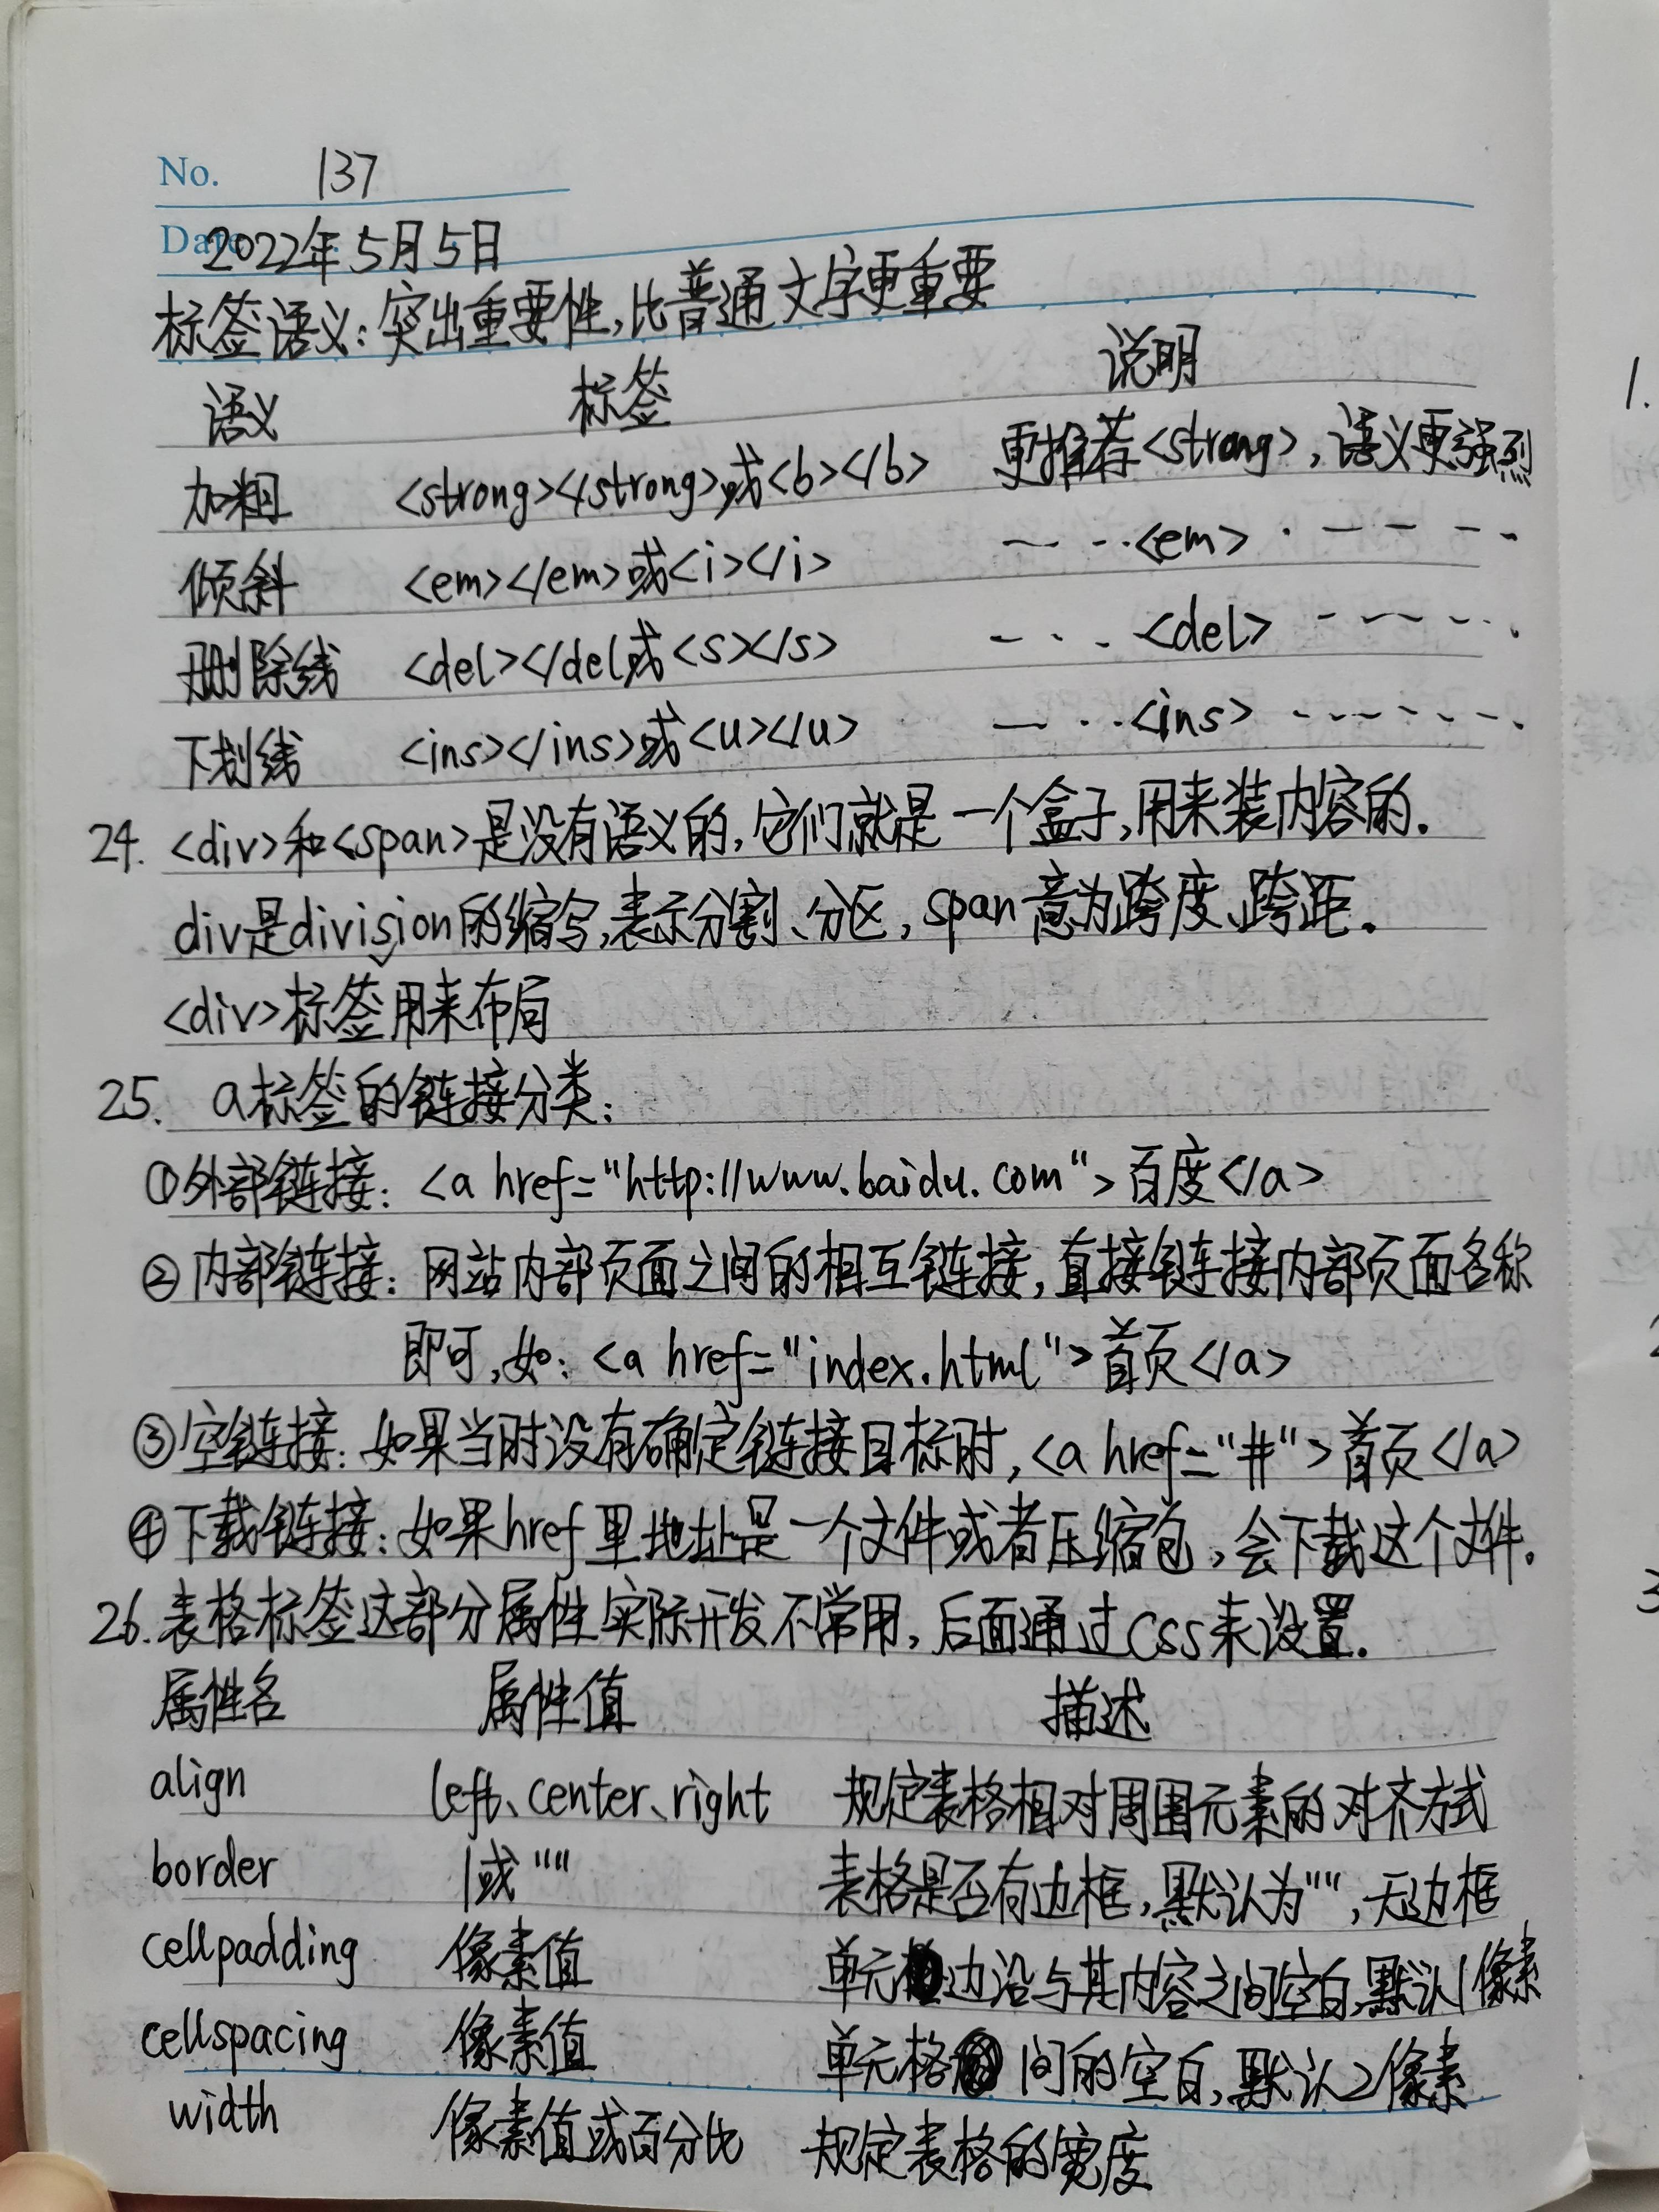 No. 137
Date 2022年5月5日
标签语义：突出重要性，比普通文字更重要
语义 标签 说明
加粗 <strong></strong>或<b></b> 更推荐<strong>，语义更强烈
倾斜 <em></em>或<i></i> <em>
删除线 <del></del或<s></s> <del>
下划线 <ins></ins>或<u></u> <ins>
24. <div>和<span>是没有语义的，它们就是一个盒子，用来装内容的.
div是division的缩写，表示分割、分区，span意为跨度、跨距。
<div>标签用来布局
25. a标签的链接分类：
①外部链接：<a href="http://www.baidu.com">百度</a>
②内部链接：网站内部页面之间的相互链接，直接链接内部页面名称
即可，如：<a href="index.html">首页</a>
③空链接：如果当时没有确定链接目标时，<a href="#">首页</a>
④下载链接：如果href里地址是一个文件或者压缩包，会下载这个文件。
26.表格标签这部分属性实际开发不常用，后面通过css来设置.
属性名 属性值 描述
align left、center、right 规定表格相对周围元素的对齐方式
border 1或"" 表格是否有边框，默认为""，无边框
cellpadding 像素值 单元边沿与其内容之间空白，默认1像素
cellspacing 像素值 单元格间的空白，默认2像素
width 像素值或百分比 规定表格的宽度
1.
3